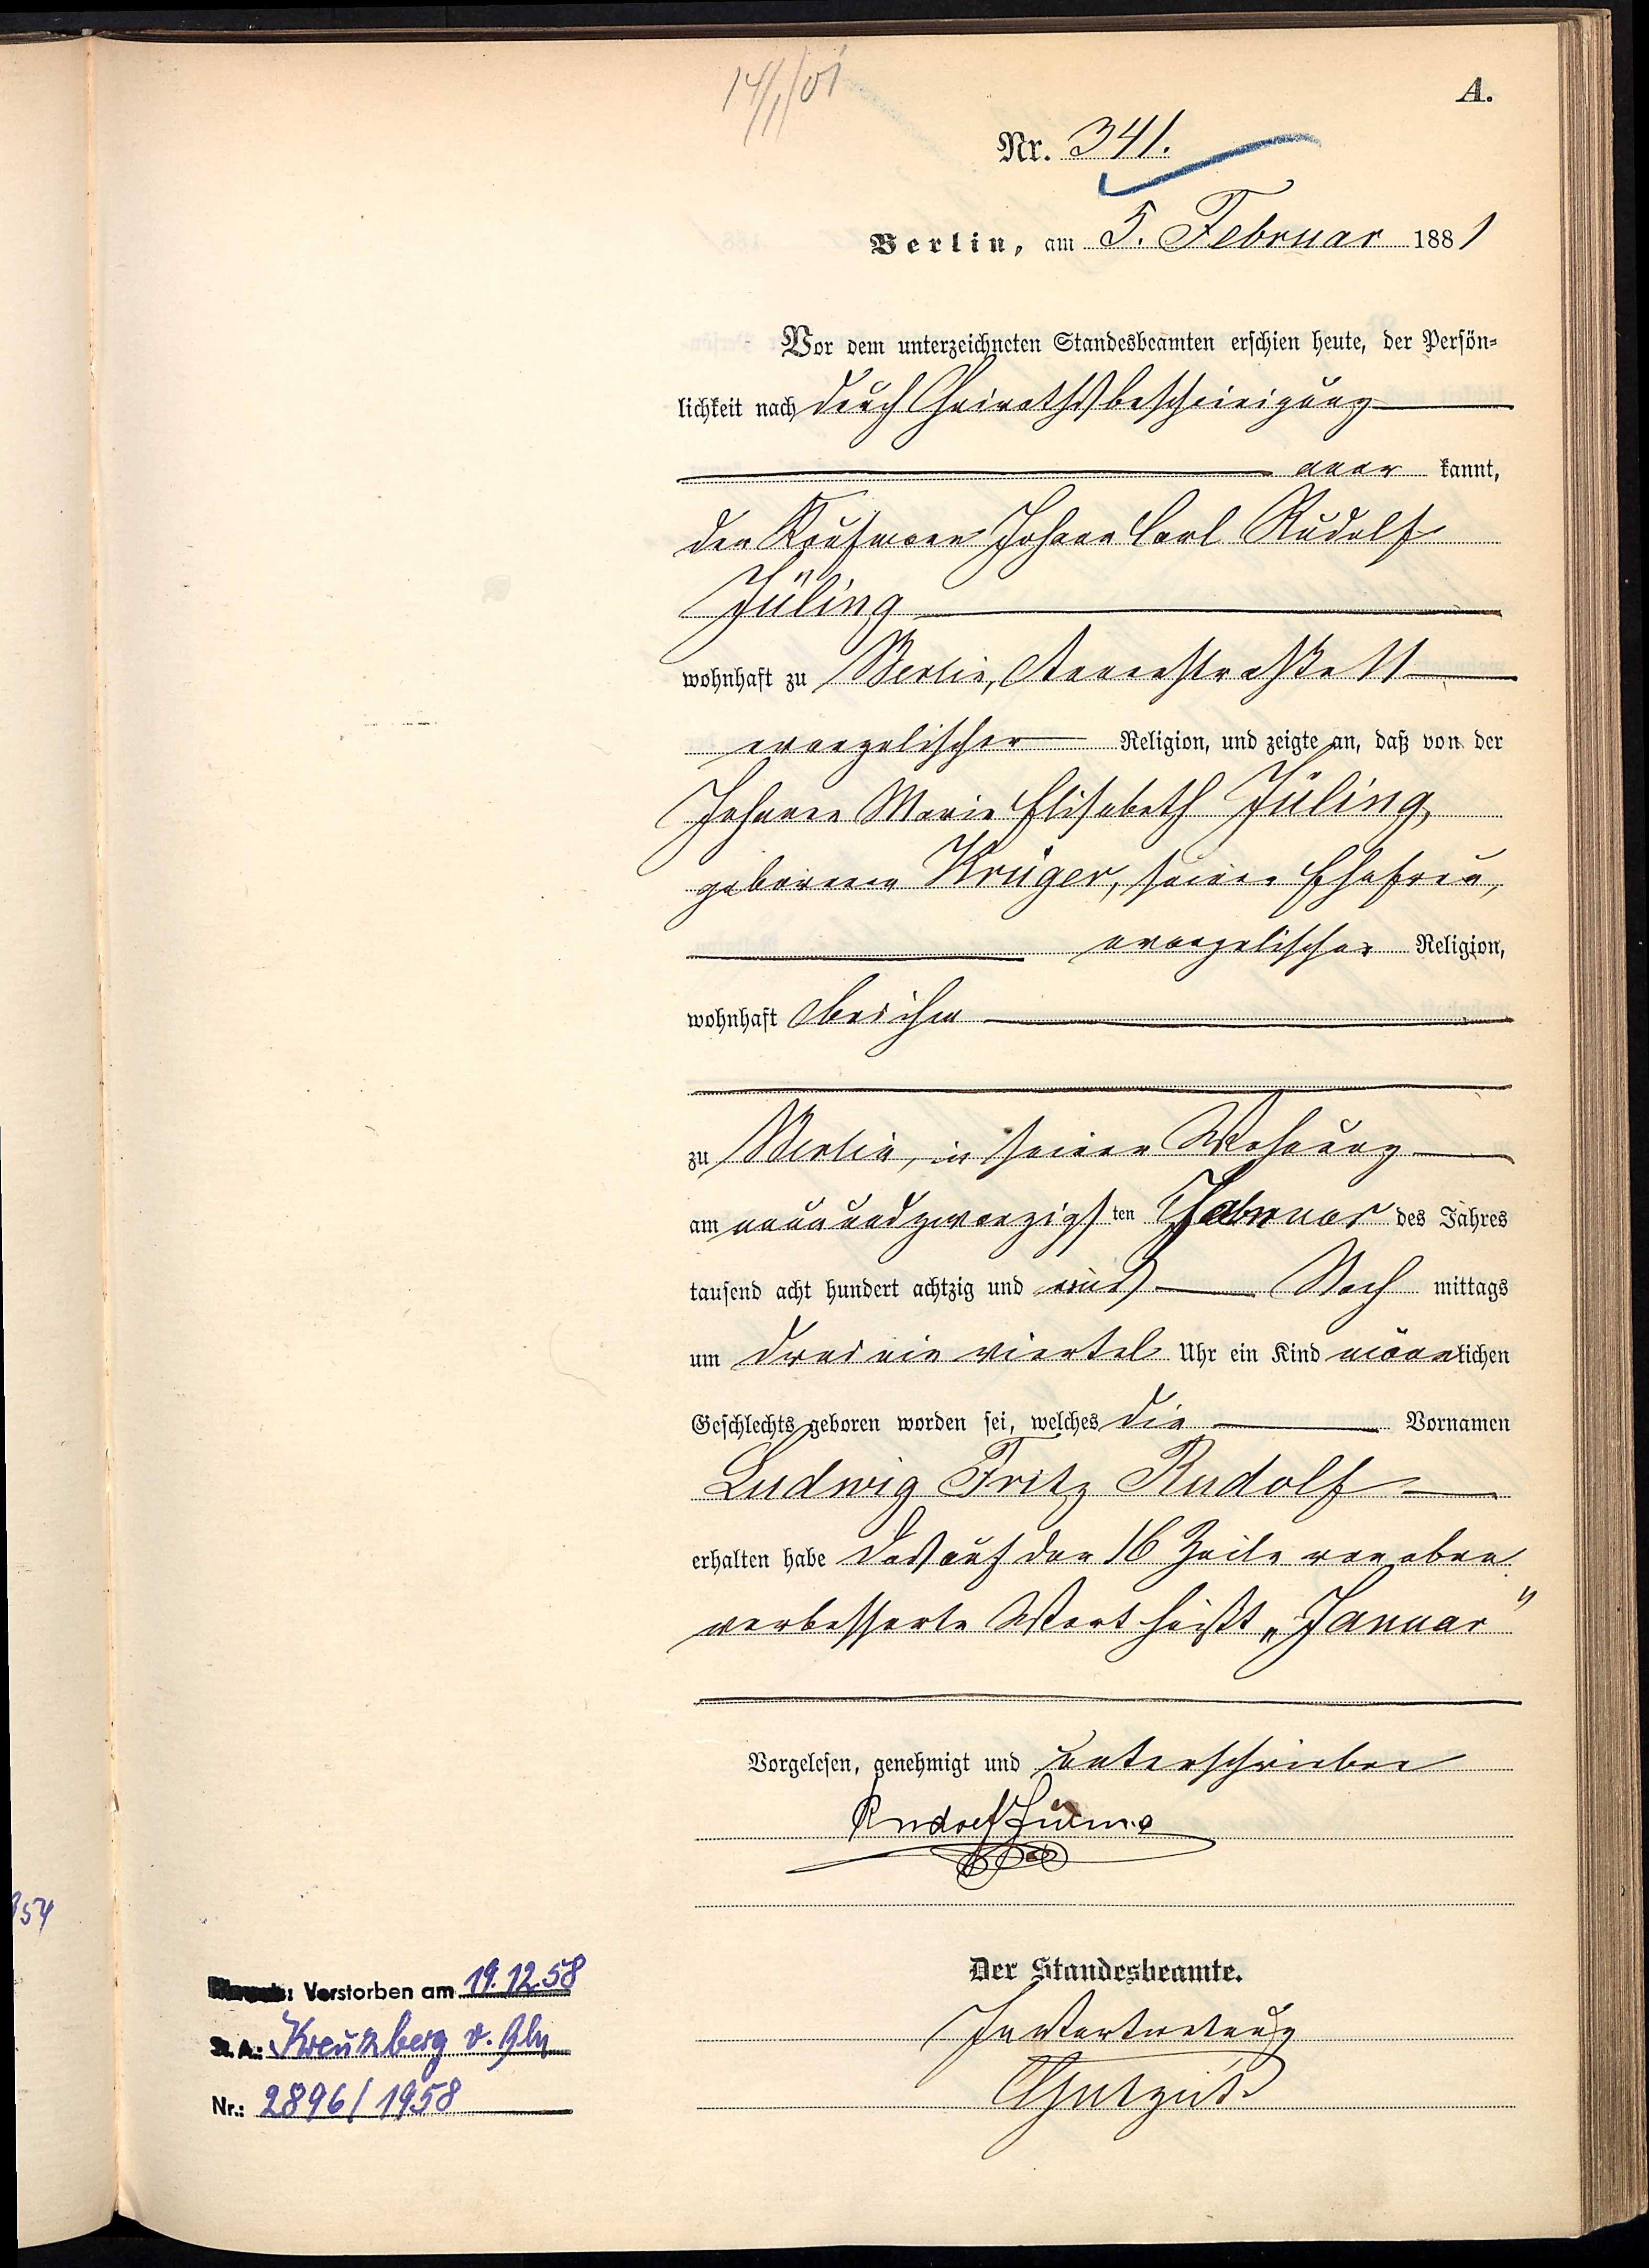 14/1/01
A.
Nr. 341.
Berlin, am 5. Februar 1881
Vor dem unterzeichneten Standesbeamten erschien heute, der Persön-
lichkeit nach durch Heirathsbescheinigung
aner kannt,
der Kaufmann Johann Carl Rudolf
Jüling
wohnhaft zu Berlin, Annenstraße 11
evangelischer Religion, und zeigte an, daß von der
Johanne Marie Elisabeth Jüling,
geborenen Krüger, seiner Ehefrau,
evangelischer Religion,
wohnhaft bei ihm
zu Berlin, in seiner Wohnung
am neunundzwanzigsten Januar des Jahres
tausend acht hundert achtzig und eins Nach mittags
um drei ein viertel Uhr ein Kind männlichen
Geschlechts geboren worden sei, welches die Vornamen
Ludwig Fritz Rudolf
erhalten habe Das auf der 16 Zeile von oben
verbesserte Wort heißt „Januar"
Vorgelesen, genehmigt und unterschrieben
Rudolf Jüling
Der Standesbeamte.
In Vertretung
154
: Verstorben am 19.12.58
St. A.: Kreuzberg v. Bln
Nr.: 2896/1958